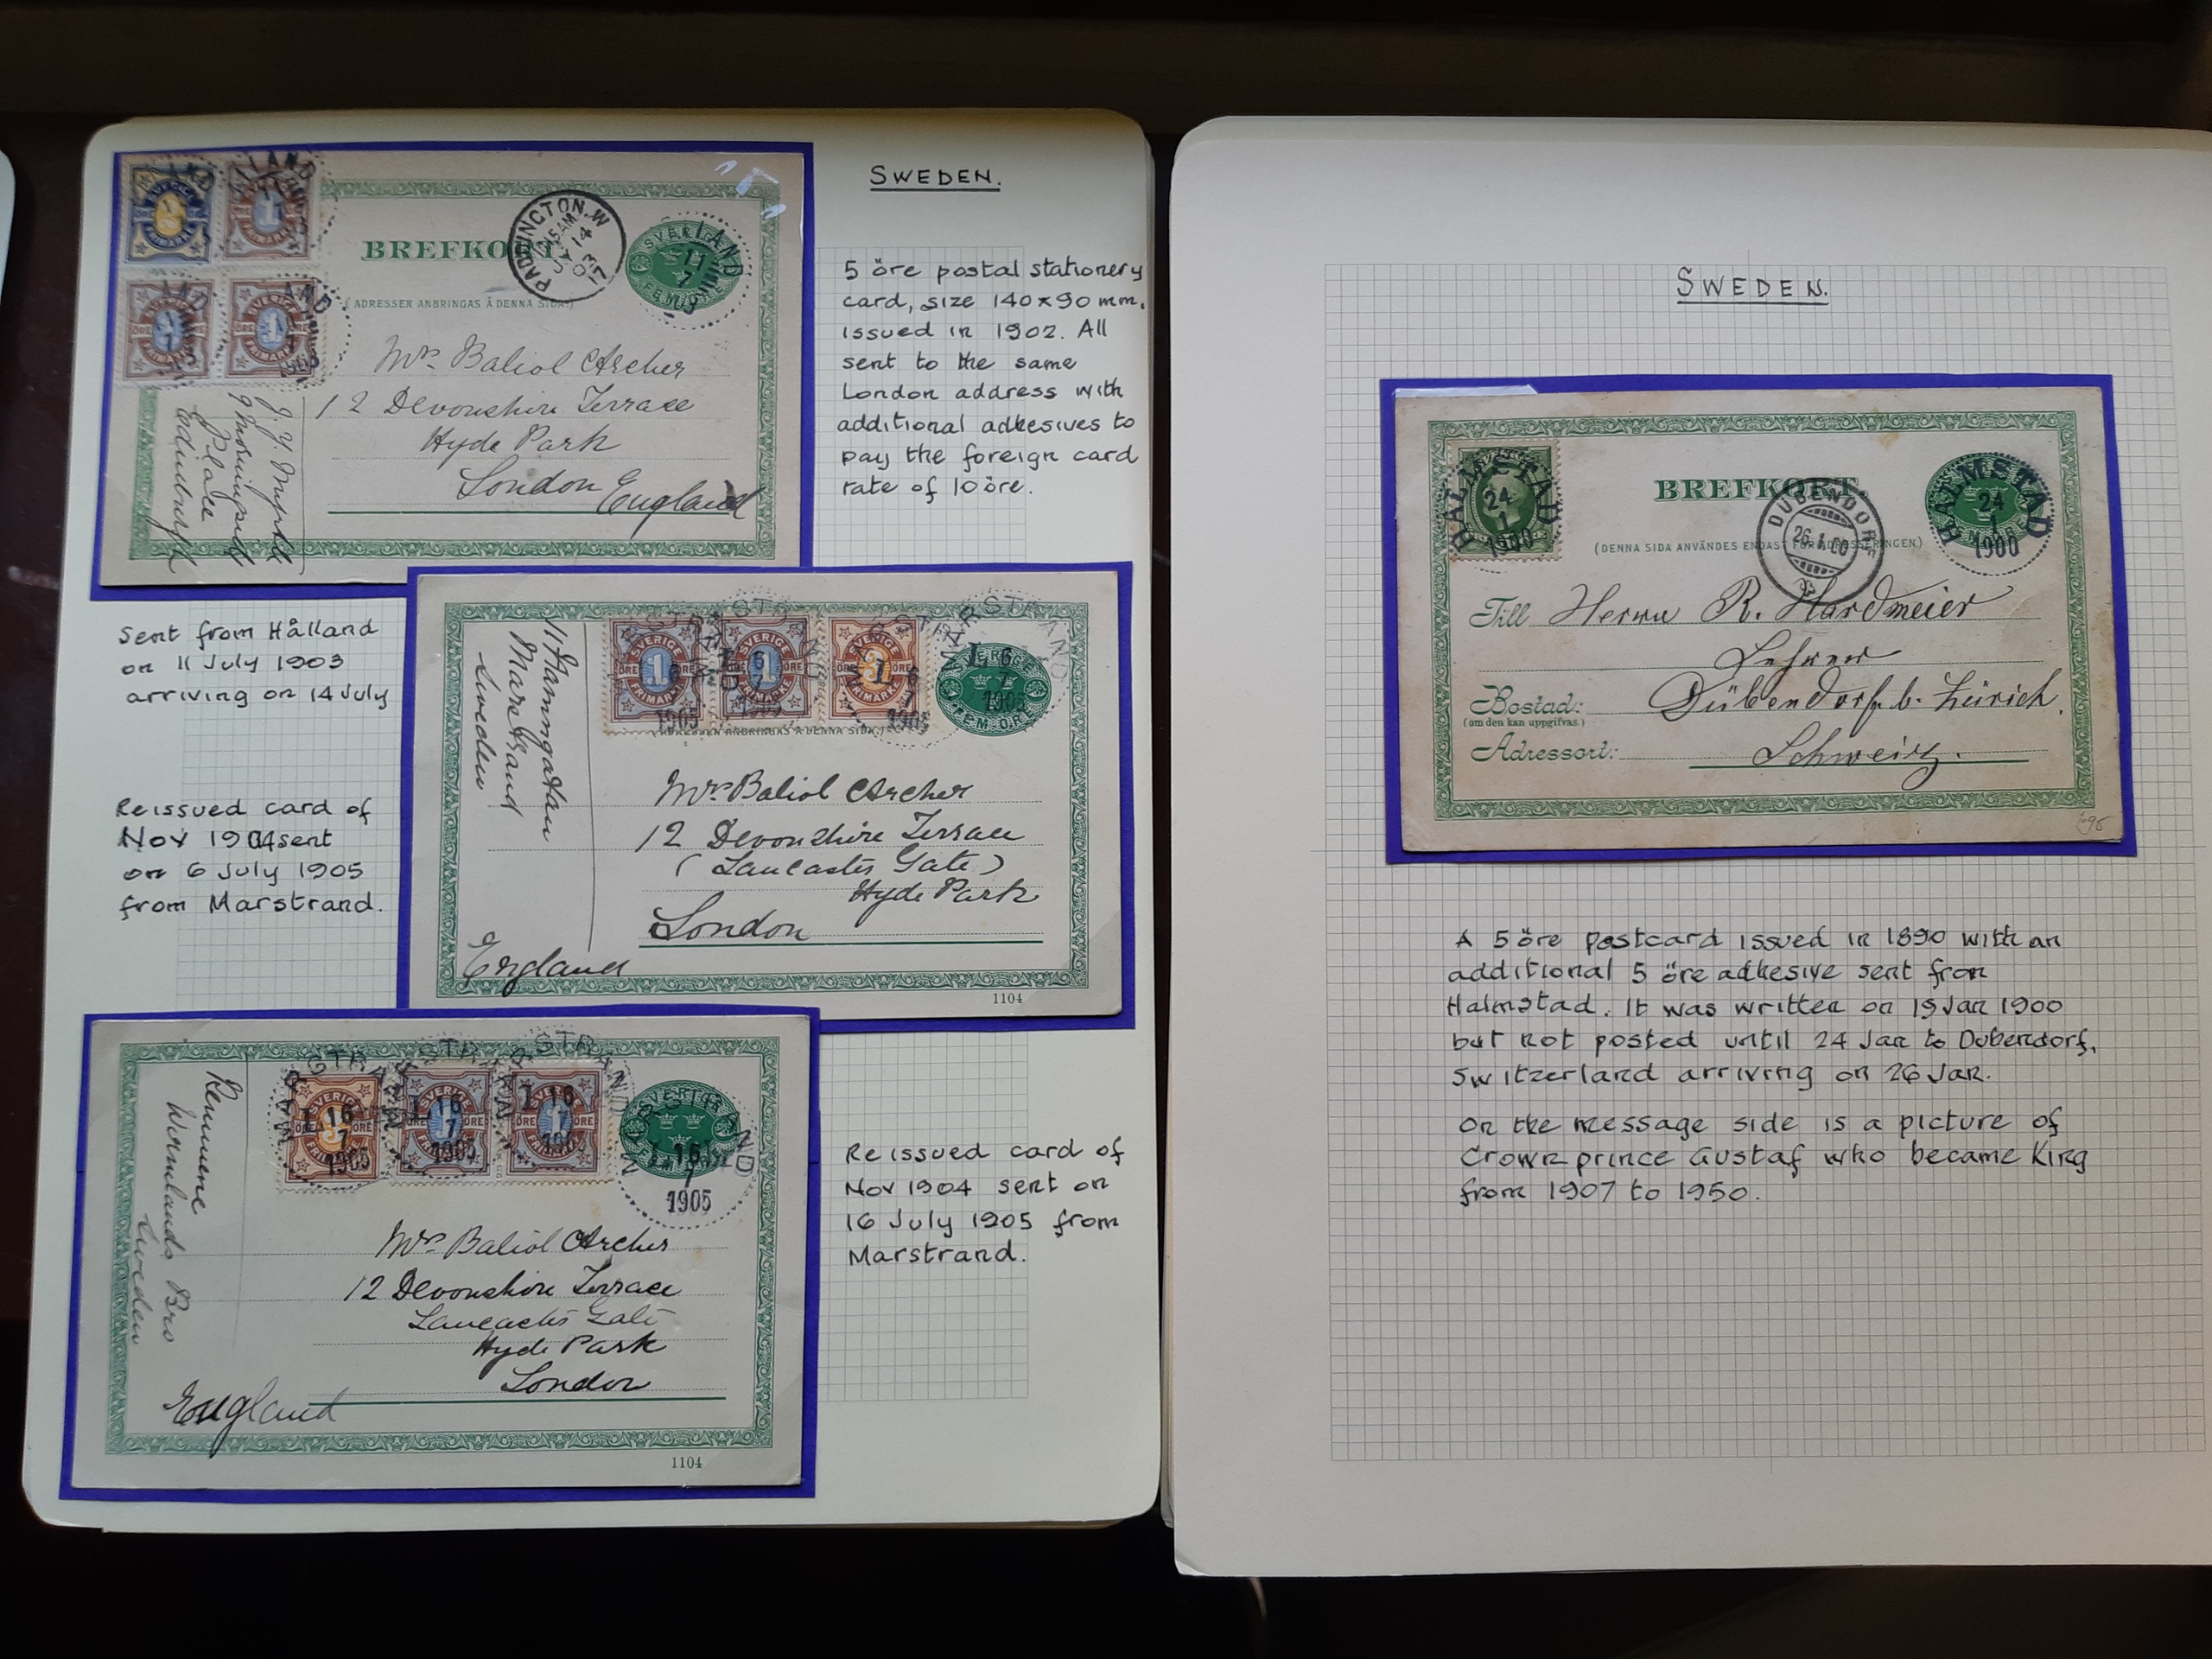 SWEDEN.
SVERIGE
1 ÖRE
FRIMÄRKE
BREFKORT.
(ADRESSEN ANBRINGAS Å DENNA SIDA.)
PADDINGTON. W
JY 14
03
17
SVERIGE
FEM ÖRE
LAND
11
7
Mrs Baliol Archer
12 Devonshire Terrace
Hyde Park
London England
Place
Edinburgh
5 öre postal stationery
card, size 140x90 mm.
issued in 1902. All
sent to the same
London address with
additional adhesives to
pay the foreign card
rate of 10 öre.
Sent from Hålland
on 11 July 1903
arriving on 14 July
Reissued card of
Nov 1904 sent
on 6 July 1905
from Marstrand.
Marstrand
Sweden
SVERIGE
1 ÖRE
FRIMÄRKE
SVERIGE
1 ÖRE
FRIMÄRKE
SVERIGE
3 ÖRE
FRIMÄRKE
MARSTRAND
6
7
1905
SVERIGE
FEM ÖRE
(ADRESSEN ANBRINGAS Å DENNA SIDA.)
Mrs Baliol Archer
12 Devonshire Terrace
(Lancaster Gate)
Hyde Park
London
England
1104
Sweden
SVERIGE
3 ÖRE
FRIMÄRKE
SVERIGE
1 ÖRE
SVERIGE
1 ÖRE
MARSTRAND
16
7
1905
Mrs Baliol Archer
12 Devonshire Terrace
Lancaster Gate
Hyde Park
London
England
1104
Reissued card of
Nov 1904 sent on
16 July 1905 from
Marstrand.
SWEDEN.
HALMSTAD
24
1
1900
BREFKORT.
DÜBENDORF
26.I.00
HALMSTAD
24
1
1900
(DENNA SIDA ANVÄNDES ENDAST FÖR ADRESSERINGEN)
Till Herrn R. Hardmeier
Lehrer
Bostad: Dübendorf b. Zürich.
(om den kan uppgifvas.)
Adressort: Schweiz.
A 5 öre postcard issued in 1890 with an
additional 5 öre adhesive sent from
Halmstad. It was written on 19 Jan 1900
but not posted until 24 Jan to Dubendorf,
Switzerland arriving on 26 Jan.
On the message side is a picture of
Crown prince Gustaf who became King
from 1907 to 1950.